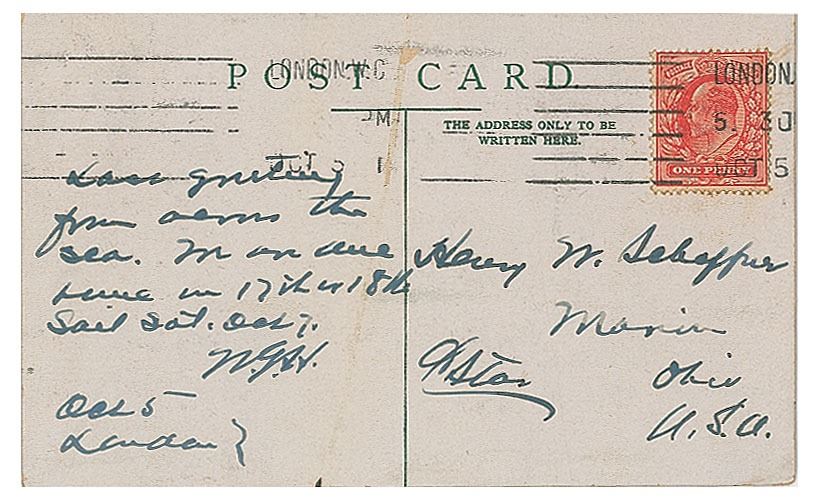 POST CARD
LONDON.W.C
LONDON.
5. 30
M
OCT 5 1
OT 5
THE ADDRESS ONLY TO BE
WRITTEN HERE.
ONE PENNY
Last greeting
from across the
sea. due
home on 17th or 18th
Sail Sat. Oct 7.
W.G.H.
Oct 5
London
Henry W. Schaffner
Marion
Star
Ohio
U.S.A.